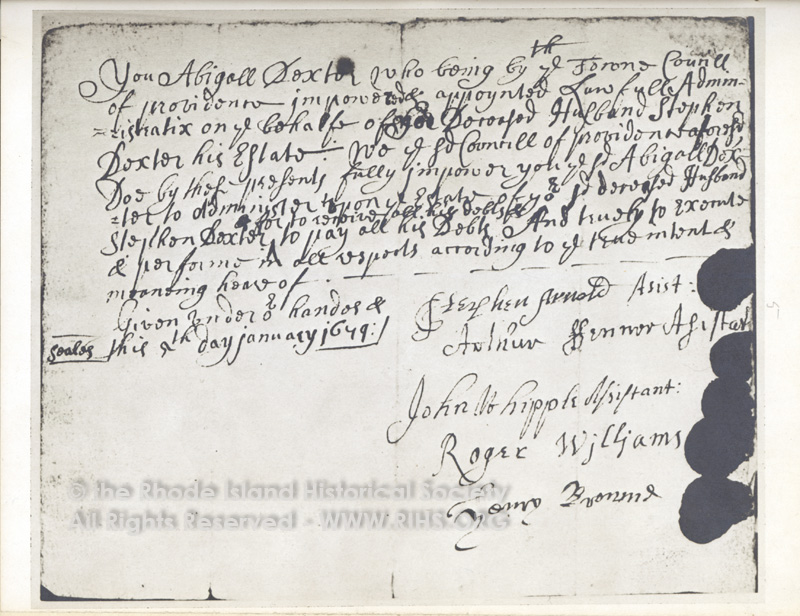 You Abigall Dexter who being by ye Towne Councill
of providence impowered & appoynted Lawfull Admin-
=istratix on ye behalfe of her Deceased Husband Stephen
Dexter his Estate: We ye sd Councill of providence aforesd
Doe by these presents fully impower you ye sd Abigall Dex-
=ter to administer upon ye Estate of yor sd deceased Husband
Stephen Dexter,
& for to receive all his debts &
to pay all his Debts And truely to Execute
& performe in all respects according to ye true intent &
meaneing heare of
Given under or handes &
seales this th day january 1679:
Stephen Arnold Asist:
Arthur ffenner Asistat
John Whipple Assistant:
Roger Williams
Henry Browne
© the Rhode Island Historical Society
All Rights Reserved - WWW.RIHS.ORG